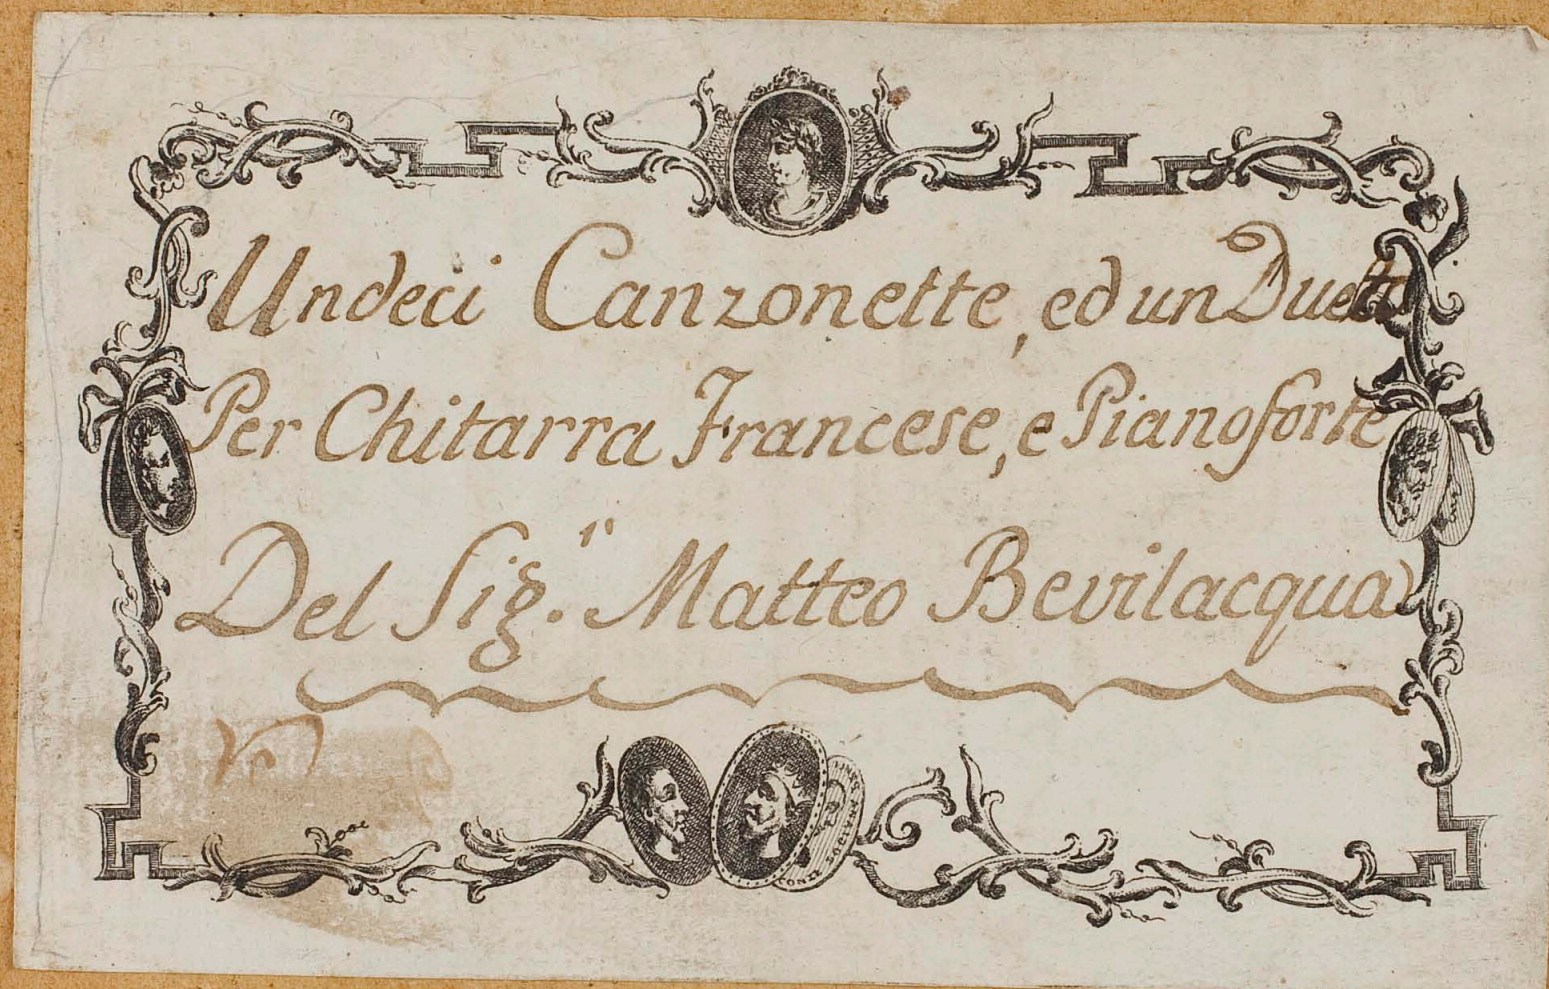 Undeci Canzonette, ed un Duett
Per Chitarra Francese, e Pianoforte
Del Sig.r Matteo Bevilacqua